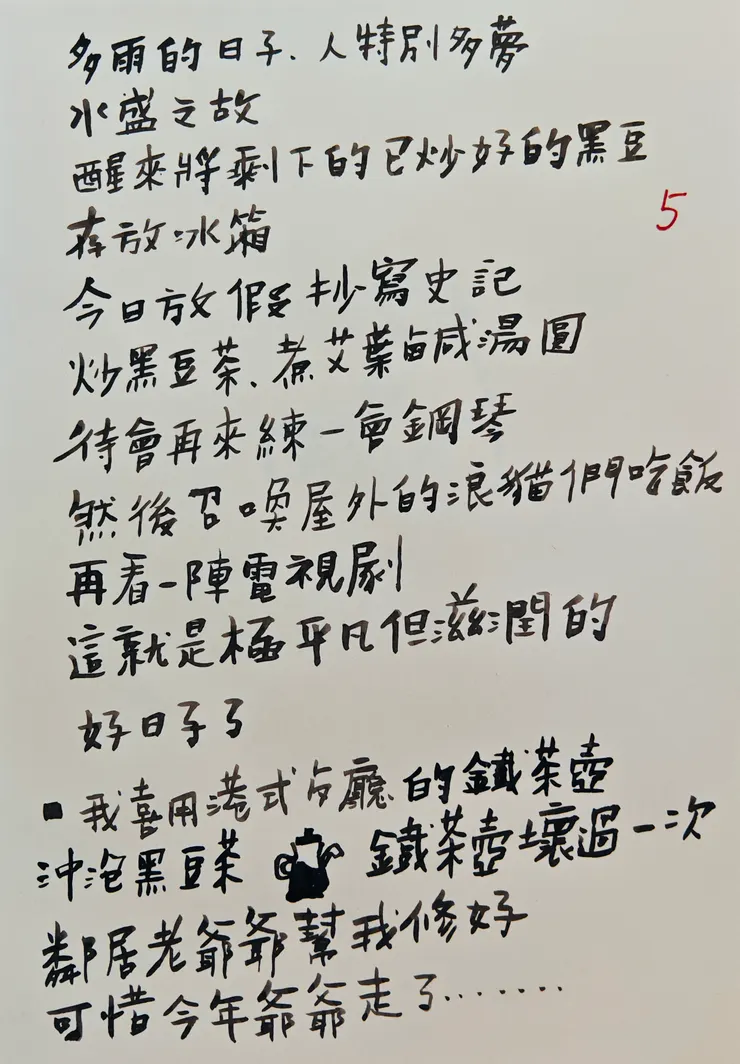 多雨的日子、人特別多夢
水盛之故
醒來將剩下的已炒好的黑豆
存放冰箱
5
今日放假抄寫史記
炒黑豆茶、煮艾葉鹹湯圓
待會再來練一會鋼琴
然後召喚屋外的浪貓們吃飯
再看一陣電視劇
這就是極平凡但滋潤的
好日子了
▪我喜用港式冰廳的鐵茶壺
沖泡黑豆茶 鐵茶壺壞過一次
鄰居老爺爺幫我修好
可惜今年爺爺走了.......